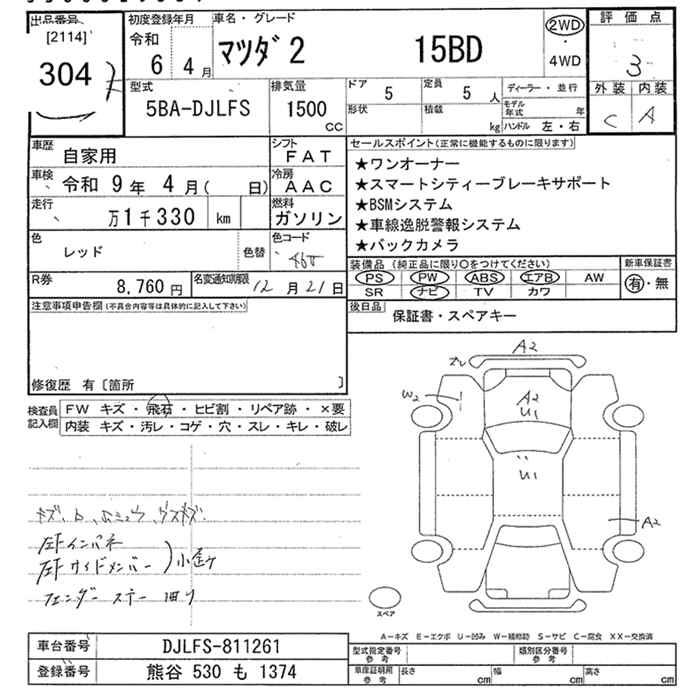 出品番号
[2114]
304
初度登録年月
令和 6年 4月
車名・グレード
マツダ2 15BD
2WD
・
4WD
評価点
3
外装 内装
C A
型式
5BA-DJLFS
排気量
1500 CC
ドア 5
定員 5 人
形状
積載 kg
ディーラー・並行
モデル年式 年
ハンドル 左・右
車歴 自家用
シフト FAT
車検 令和 9年 4月( 日)
冷房 AAC
走行 万1千330 km
燃料 ガソリン
色 レッド 色替
色コード 46V
R券 8,760円
名変通知期限 12月21日
セールスポイント(正常に機能するものに限ります)
★ワンオーナー
★スマートシティーブレーキサポート
★BSMシステム
★車線逸脱警報システム
★バックカメラ
装備品(純正品に限り○をつけてください)
新車保証書
PS PW ABS エアB AW
SR ナビ TV カワ
有・無
後日品 保証書・スペアキー
注意事項申告欄(不具合内容等は具体的に記入して下さい)
修復歴 有〔箇所 〕
検査員記入欄
FW キズ・飛石・ヒビ割・リペア跡・×要
内装 キズ・汚レ・コゲ・穴・スレ・キレ・破レ
左Fインパネ
左Fサイドメンバー
フェンダーステー曲り
A2
ズレ
W2
A2
U1
U1
A2
スペア
A-キズ E-エクボ U-凹み W-補修跡 S-サビ C-腐食 XX-交換済
車台番号 DJLFS-811261
登録番号 熊谷 530 も 1374
型式指定番号 参考
類別区分番号 参考
車庫証明用 参考
長さ cm 幅 cm 高さ cm